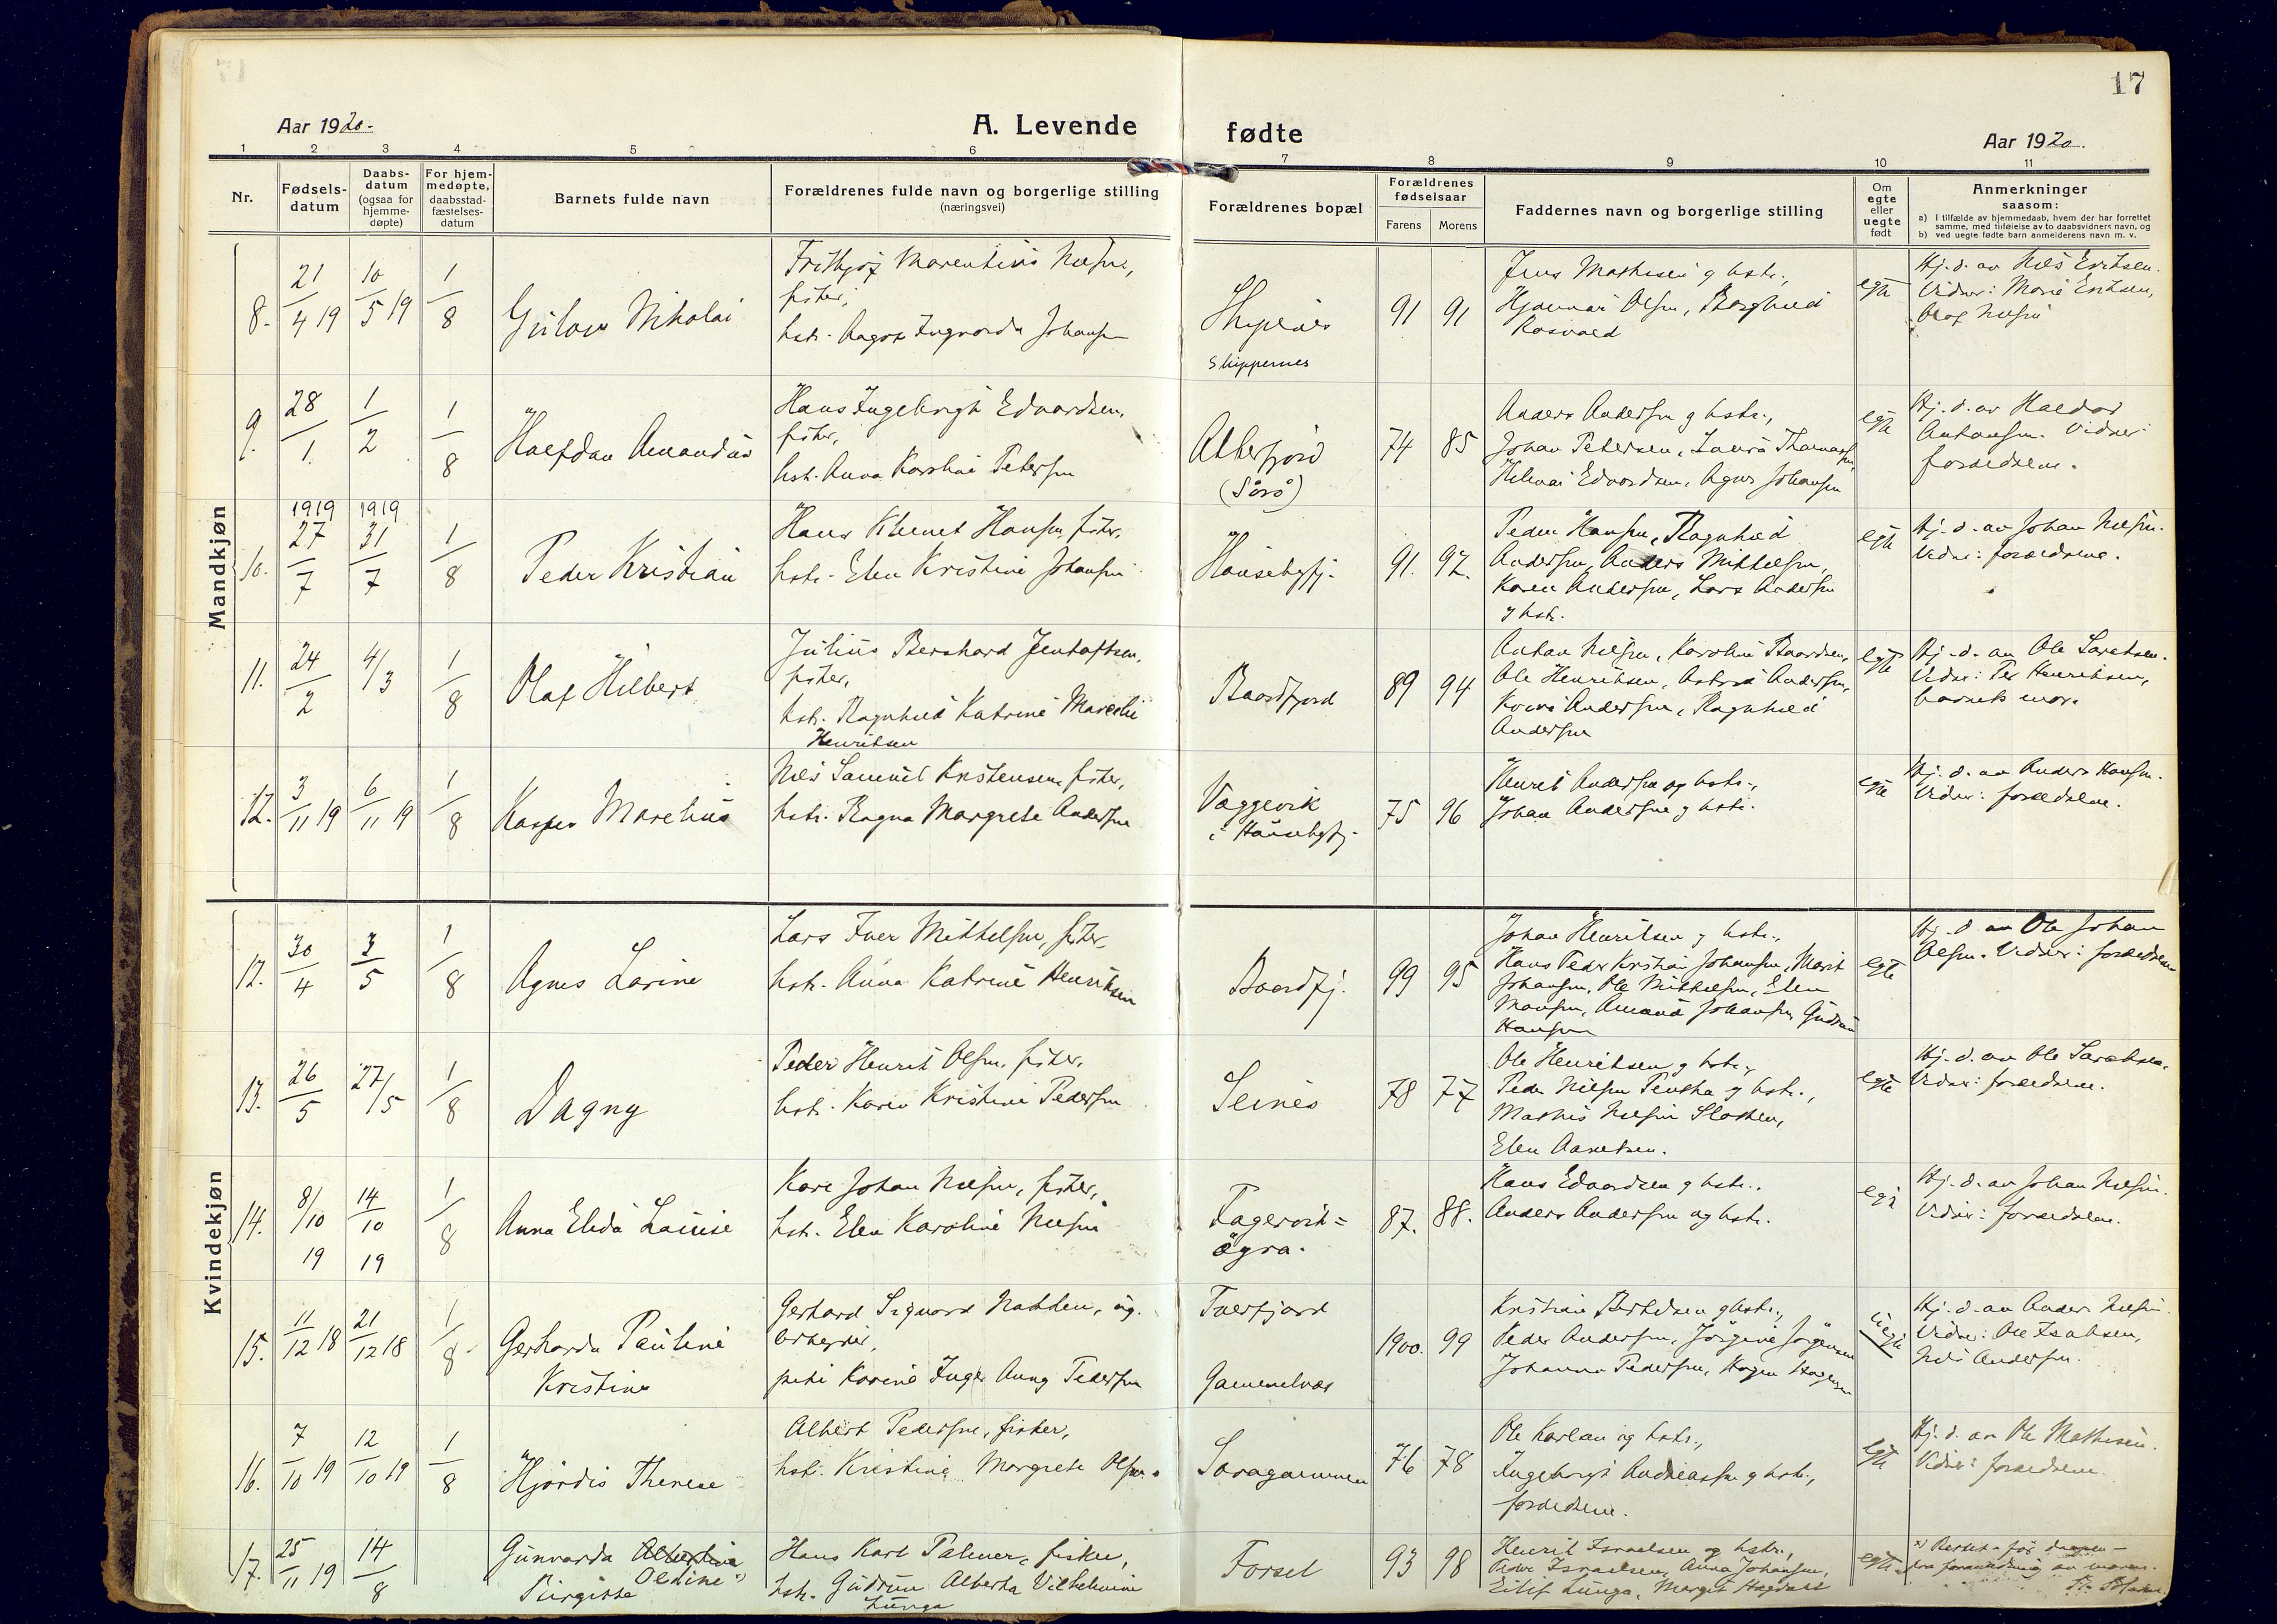 17
Aar 1920.
A. Levende
fødte
Aar 1920.
1 2 3 4 5 6 7 8 9 10 11
Nr.
Fødsels-
datum
Daabs-
datum
(ogsaa for
hjemme-
døpte)
For hjem-
medøpte,
daabsstad-
fæstelses-
datum
Barnets fulde navn
Forældrenes fulde navn og borgerlige stilling
(næringsvei)
Forældrenes bopæl
Forældrenes
fødselsaar
Farens
Morens
Faddernes navn og borgerlige stilling
Om
egte
eller
uegte
født
Anmerkninger
saasom:
a) I tilfælde av hjemmedaab, hvem der har forrettet
samme, med tilføielse av to daabsvidners navn, og
b) ved uegte fødte barn anmelderens navn m. v.
Mandkjøn
8.
21/4 19
10/5 19
1/8
Nikolai
fisker,
hstr.
Johansen
Skippernes
91 91
Jens Mathisen og hstr.,
Hjalmar Olsen,
egte
Hj. d. av Nils Eriksen.
Vidner: Marie Eriksen,
Olaf Nilsen
9.
28/1
1/2
1/8
Halfdan Amandus
Hans Ingebrigt Edvardsen,
fisker,
hstr. Anna Karoline Petersen
(Sørø)
74 85
Anders Andersen og hstr.,
Johan Petersen, Laura Thomassen,
Edvardsen, Agnes Johansen
egte
Hj. d. av Haldor
Antonsen. Vidner:
forældrene.
10.
1919 27/7
1919 31/7
1/8
Peder Kristian
Hans Klemet Hansen, fisker,
hstr. Elen Kristine Johansen
Hønsebyfj.
91. 92.
Peder Hansen, Ragnhild
Andersen, Anders Mikkelsen,
Karen Andersen, Lars Andersen
og hstr.
egte
Hj. d. av Johan Nilsen.
Vidner: forældrene.
11.
24/2
4/3
1/8
Olaf Hilbert
Julius Bernhard Jentoftsen,
fisker,
hstr. Ragnhild Katrine
Henriksen
Baardfjord
89 94
Anton Nilsen, Karoline Baardsen,
Ole Henriksen, Astrid Andersen,
Andersen, Ragnhild
Andersen
egte
Hj. d. av Ole Sarelsen.
Vidner: Per Henriksen,
barnets mor.
12.
3/11 19
6/11 19
1/8
Kasper Marelius
Nils Samuel Kristensen, fisker,
hstr. Ragna Margrete Andersen
Væggevik
i Hønsebyfj.
75 96
Henrik Andersen og hstr.,
Johan Andersen og hstr.
egte
Hj. d. av Anders Hansen.
Vidner: forældrene.
Kvindekjøn
12.
30/4
3/5
1/8
Agnes Larine
Lars Iver Mikkelsen, fisker,
hstr. Anna Katrine Henriksen
Baardfj.
99 95
Johan Henriksen og hstr.,
Hans Peder Kristian Johansen, Marit
Johansen, Ole Mikkelsen, Elen
Hansen, Amanda Johansen, Gudrun
Hansen
egte
Hj. d. av Ole Johan
Olsen. Vidner: forældrene
13.
26/5
27/5
1/8
Dagny
Peder Henrik Olsen, fisker,
hstr. Karen Kristine Pedersen
Seines
78 77
Ole Henriksen og hstr.,
Peder Nilsen Pentha og hstr.,
Mathis Nilsen
Elen
egte
Hj. d. av Ole Sarelsen.
Vidner: forældrene.
14.
8/10 19
14/10 19
1/8
Anna Elida Louise
Karl Johan Nilsen, fisker,
hstr. Elen Karoline Nilsen
Fagervik=
øyra.
87. 88.
Hans Edvardsen og hstr.,
Anders Andersen og hstr.
egte
Hj. d. av Johan Nilsen.
Vidner: forældrene.
15.
11/12 18
21/12 18
1/8
Gerharda Pauline
Kristine
Gerhard Sigvard Nakken, ug.
arbeider,
pike Karine Inger Anna Pedersen
Tverfjord
Gammelvær
1900. 99
Kristian Bertelsen og hstr.,
Peder Andersen, Jørgine Jørgensen
Johanna Pedersen, Hagen Hagensen
uegte
Hj. d. av Anders Nilsen
Vidner: Ole Isaksen,
Nils Andersen.
16.
7/10 19
12/10 19
1/8
Hjørdis Therese
Albert Pedersen, fisker,
hstr. Kristine Margrete Olsen.
Saragammen
76 78
Ole Karlsen og hstr.,
Ingebrigt Andreassen og hstr.,
forældrene.
egte
Hj. d. av Ole Mathisen.
Vidner: forældrene.
17.
25/11 19
14/8
Gunvarda Albertine
Oldine x)
Birgitte
Hans Karl Palmer, fisker,
hstr. Gudrun Alberta Vilhelmine
Lunga
Forsøl
93 98
Henrik Israelsen og hstr.,
Peder Israelsen, Anna Johansen,
Eilif Lunga, Margit
egte
x)